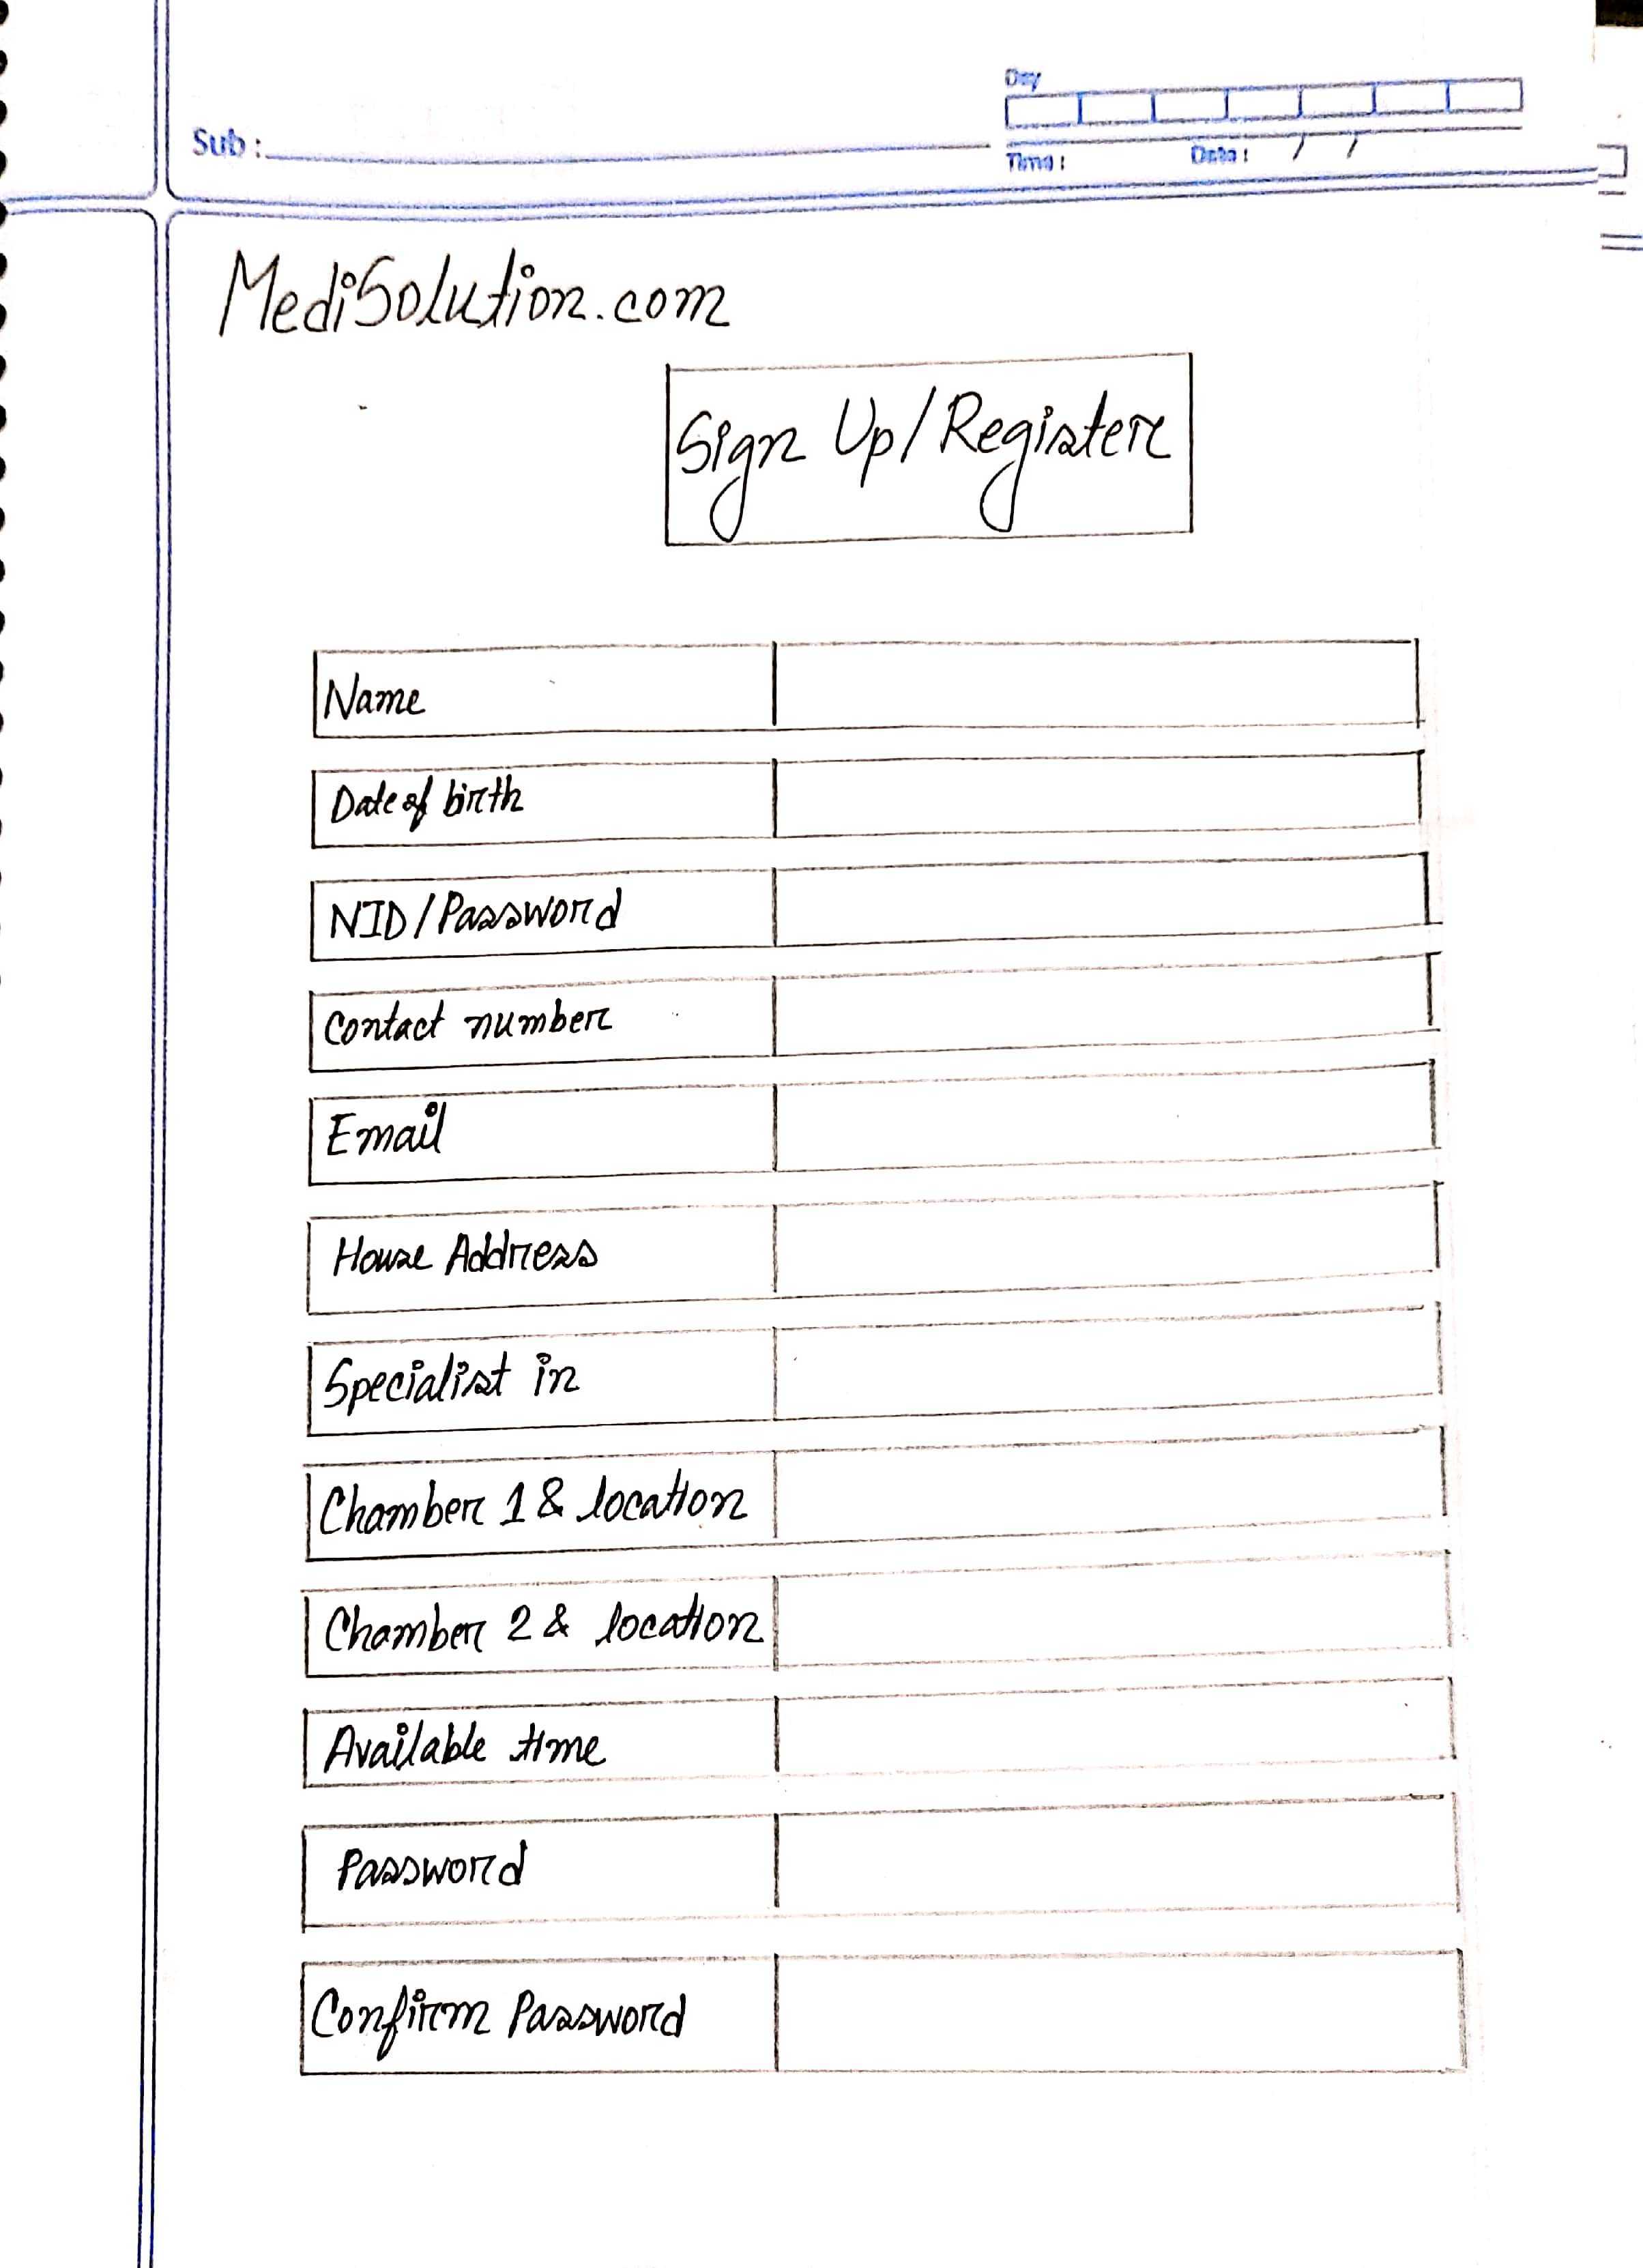 Day
Sub :
Time :
Date : / /
MediSolution.com
Sign Up/Register
Name
Date of birth
NID/Password
Contact number
Email
House Address
Specialist in
Chamber 1 & location
Chamber 2 & location
Available time
Password
Confirm Password